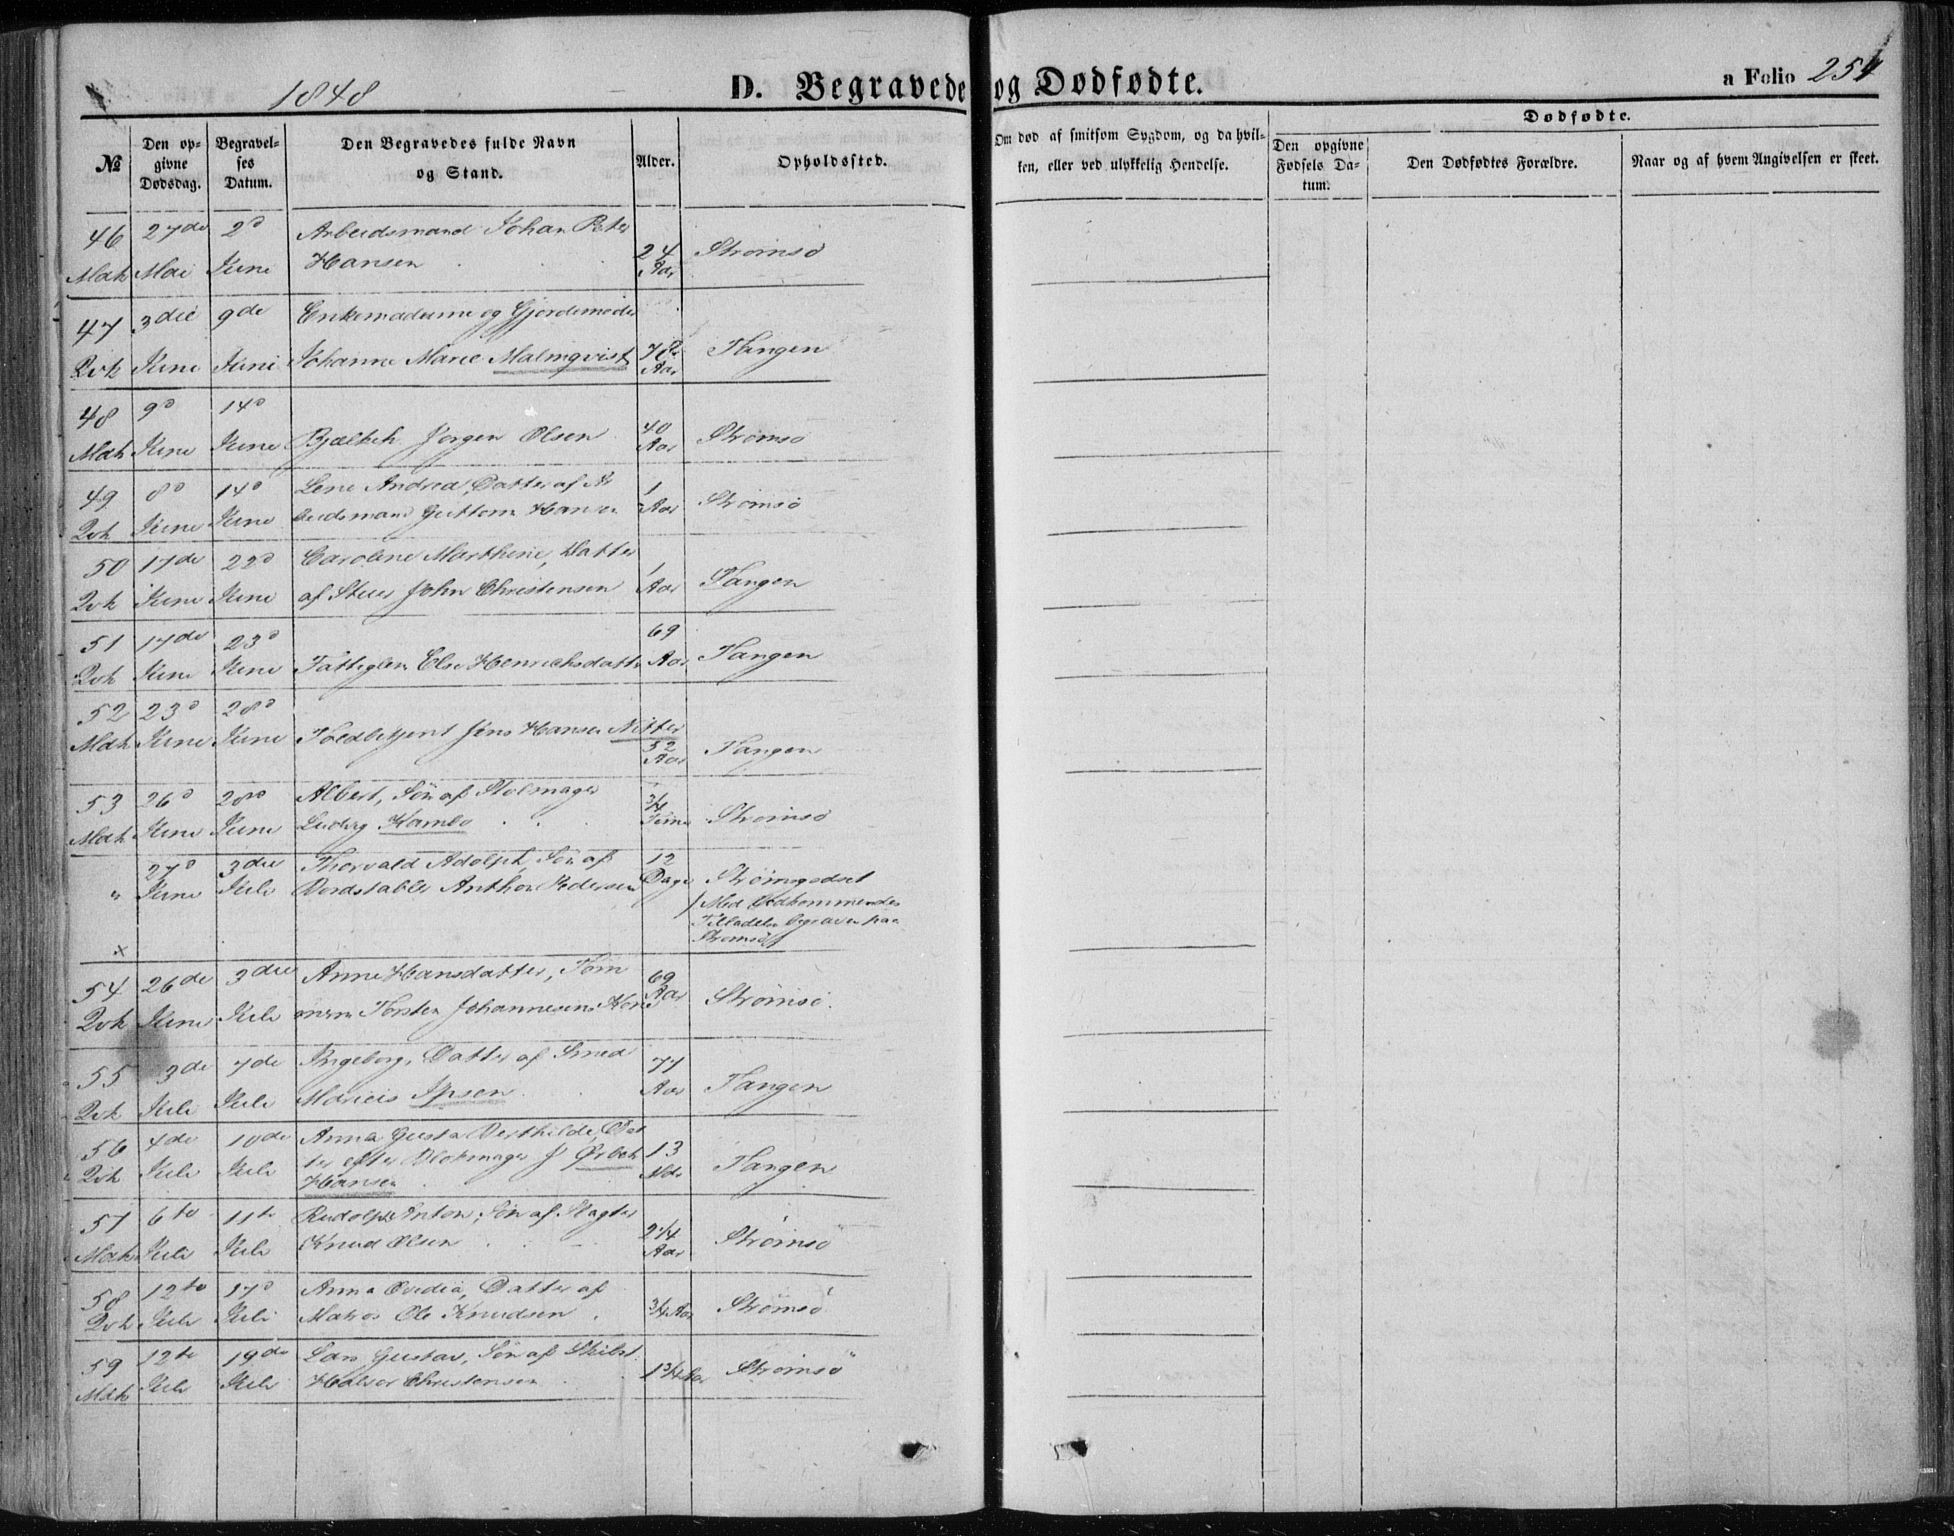 1848
D. Begravede og Dødfødte.
a Folio 254
№
Den opgivne Dødsdag.
Begravelses Datum.
Den Begravedes fulde Navn og Stand.
Alder.
Opholdssted.
Om død af smitsom Sygdom, og da hvilken, eller ved ulykkelig Hendelse.
Dødfødte.
Den opgivne Fødsels Datum.
Den Dødfødtes Forældre.
Naar og af hvem Angivelsen er skeet.
46 27de 2d Arbeidsmand Johan Peter
Mdk Mai Juni Hansen 24 Aar Strømsø
47 3die 9de Enkemadame og Gjordemoder
Qvk Juni Juni Johanne Marie Malmqvist Aar Tangen
48 9d 14d
Mdk Juni Juni Jørgen Olsen 40 Aar Strømsø
49 8d 14d Lene Andrea, Datter af Ar
Qvk Juni Juni beidsmand Guttorm Hansen 1 Aar Strømsø
50 17de 22d Caroline Marthine, Datter
Qvk Juni Juni af Stuer John Christensen 1 Aar Tangen
51 17de 23d
Qvk Juni Juni Fattiglem Else Henrichsdatter 69 Aar Tangen
52 23d 28d
Mdk Juni Juni Toldbetjent Jens Hansen Nitter 52 Aar Tangen
53 26d 28de Albert, Søn af Stolmager
Mdk Juni Juni Ludvig Kambo 3/4 Time Strømsø
" 27d 3die Thorvald Adolph, Søn af 12
Juni Juli Vordstabler Anthon Pedersen Dage Strømsgodset
/Med Vedkommendes
Tilladelse begraven paa
Strømsø/
x
54 26de 3die Anne Hansdatter, Tøm
Qvk Juni Juli mrm Torsten Johannesens Kone 69 Aar Strømsø.
55 3de 7de Ingeborg, Datter af Smed
Qvk Juli Juli Marius Ipsen 77 Aar Tangen
56 4de 10de Anna Gusta Berthilde, Dat
Qvk Juli Juli ter efter Blokmager J Ørbek 13 Aar Tangen
Hansen
57 6te 11te Rudolph Anton, Søn af Slagter
Mdk Juli Juli Knud Olsen 2 1/4 Aar Strømsø
58 12te 17d Anna Ovedia, Datter af
Qvk Juli Juli Matros Ole Knudsen 3/4 Aar Strømsø
59 12te 19de Lars Gustav, Søn af Skibst.
Mdk Juli Juli Halvor Christensen 1 3/4 Aar Strømsø